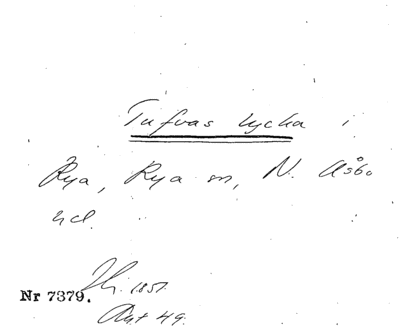 Tufvas lycka i
Rya, Rya sn, N. Åsbo
hd.
Jb. 1851.
Nr 7379.
Akt 49.